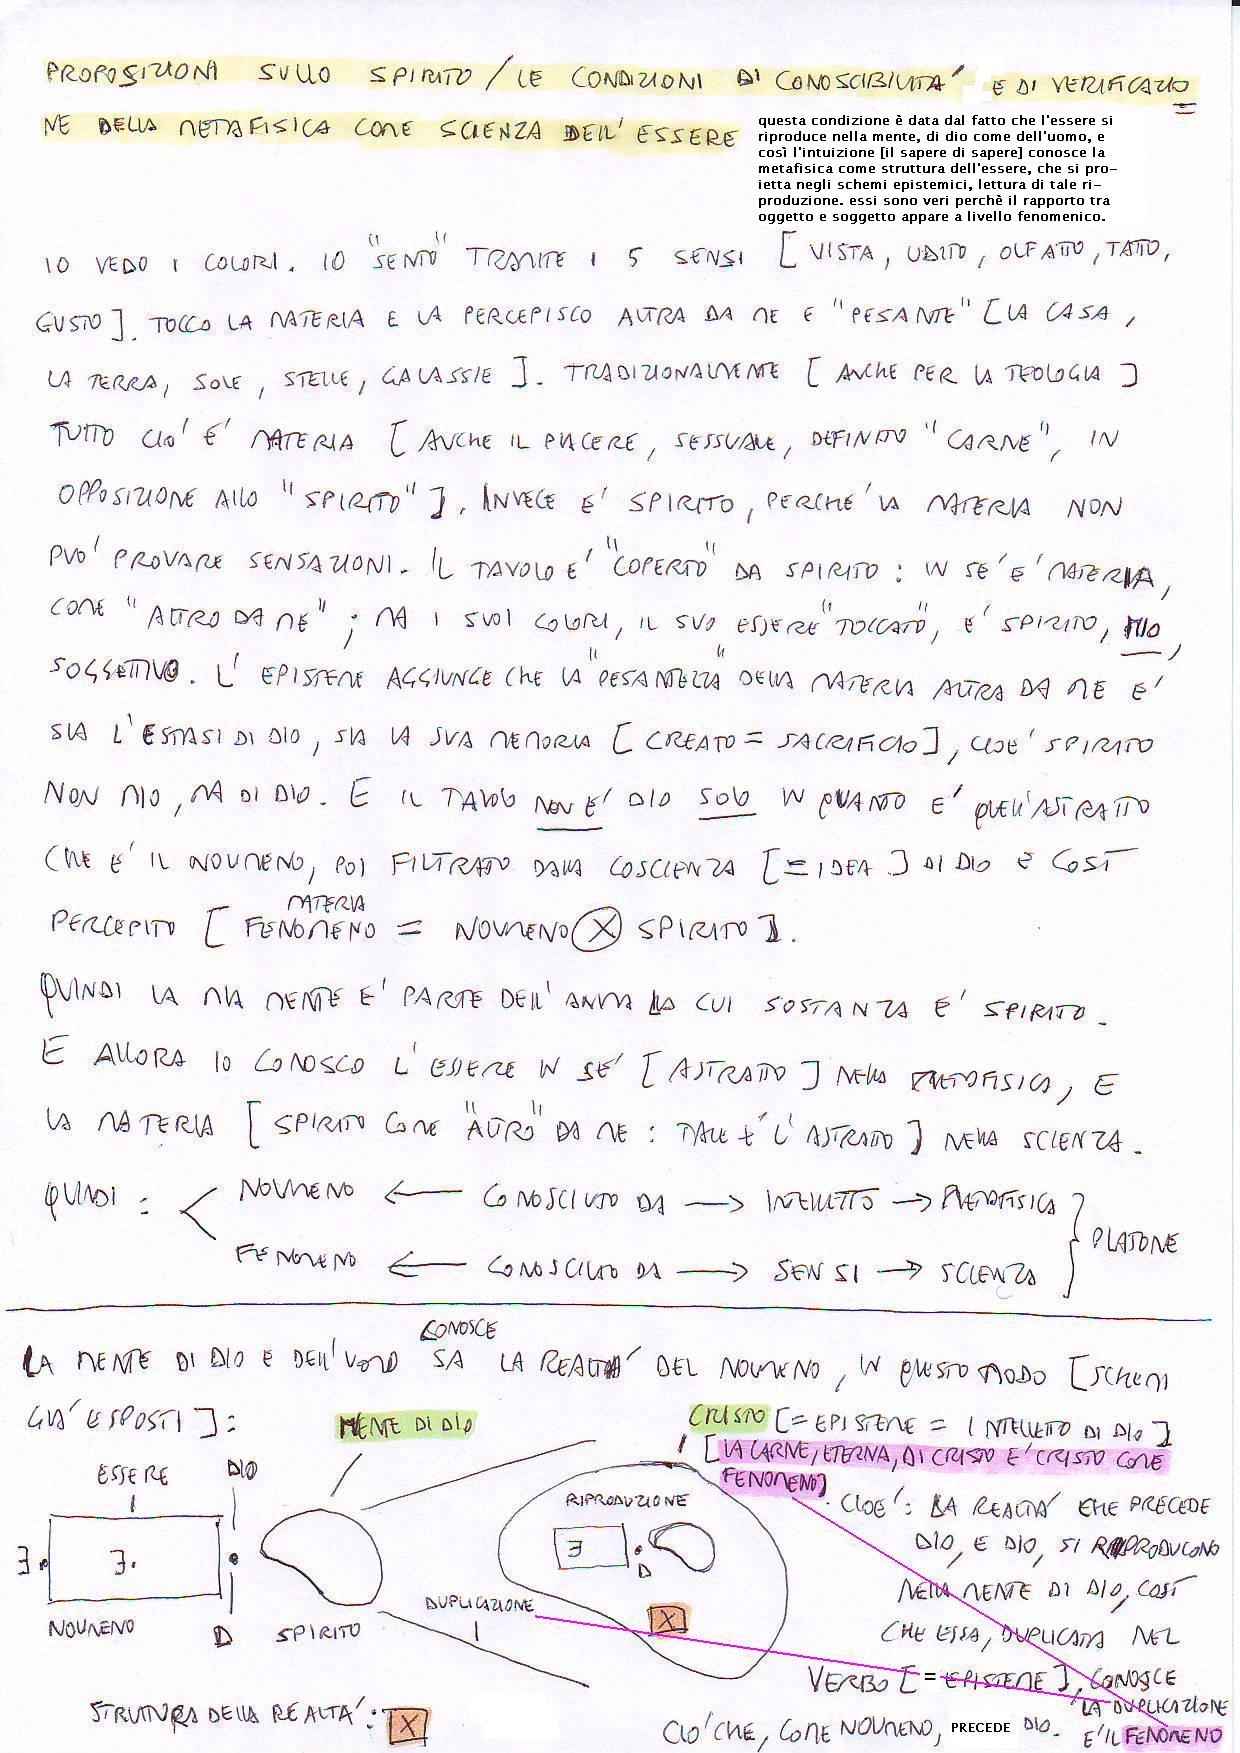 PROPOSIZIONI SULLO SPIRITO / LE CONDIZIONI DI CONOSCIBILITA' E DI VERIFICAZIO
NE DELLA METAFISICA COME SCIENZA DELL'ESSERE
questa condizione è data dal fatto che l'essere si
riproduce nella mente, di dio come dell'uomo, e
così l'intuizione [il sapere di sapere] conosce la
metafisica come struttura dell'essere, che si pro-
ietta negli schemi epistemici, lettura di tale ri-
produzione. essi sono veri perchè il rapporto tra
oggetto e soggetto appare a livello fenomenico.
IO VEDO I COLORI. IO "SENTO" TRAMITE I 5 SENSI [VISTA, UDITO, OLFATTO, TATTO,
GUSTO]. TOCCO LA MATERIA E LA PERCEPISCO ALTRA DA ME E "PESANTE" [LA CASA,
LA TERRA, SOLE, STELLE, GALASSIE]. TRADIZIONALMENTE [ANCHE PER LA TEOLOGIA]
TUTTO CIO' E' MATERIA [ANCHE IL PIACERE, SESSUALE, DEFINITO "CARNE", IN
OPPOSIZIONE ALLO "SPIRITO"]. INVECE E' SPIRITO, PERCHE' LA MATERIA NON
PUO' PROVARE SENSAZIONI. IL TAVOLO E' "COPERTO" DA SPIRITO: IN SE' E' MATERIA,
COME "ALTRO DA ME"; MA I SUOI COLORI, IL SUO ESSERE "TOCCATO", E' SPIRITO, MIO,
SOGGETTIVO. L'EPISTEME AGGIUNGE CHE LA "PESANTEZZA" DELLA MATERIA ALTRA DA ME E'
SIA L'ESTASI DI DIO, SIA LA SUA MEMORIA [CREATO = SACRIFICIO], CIOE' SPIRITO
NON MIO, MA DI DIO. E IL TAVOLO NON E' DIO SOLO IN QUANTO E' QUELL'ASTRATTO
CHE E' IL NOUMENO, POI FILTRATO DALLA COSCIENZA [= IDEA] DI DIO E COSI'
MATERIA
PERCEPITO [FENOMENO = NOUMENO X SPIRITO].
QUINDI LA MIA MENTE E' PARTE DELL'ANIMA LA CUI SOSTANZA E' SPIRITO.
E ALLORA IO CONOSCO L'ESSERE IN SE' [ASTRATTO] NELLA METAFISICA, E
LA MATERIA [SPIRITO COME "ALTRO" DA ME: TALE E' L'ASTRATTO] NELLA SCIENZA.
QUINDI: < NOUMENO ← CONOSCIUTO DA → INTELLETTO → METAFISICA } PLATONE
FENOMENO ← CONOSCIUTO DA → SENSI → SCIENZA
CONOSCE
LA MENTE DI DIO E DELL'UOMO SA LA REALTA' DEL NOUMENO, IN QUESTO MODO [SCHEMI
GIA' ESPOSTI]:
MENTE DI DIO
CRISTO [= EPISTEME = INTELLETTO DI DIO]
[LA CARNE, ETERNA, DI CRISTO E' CRISTO COME
FENOMENO]
ESSERE DIO
RIPRODUZIONE
. CIOE': LA REALTA' CHE PRECEDE
DIO, E DIO, SI RIPRODUCONO
NELLA MENTE DI DIO, COSI'
CHE ESSA, DUPLICATA NEL
VERBO [= EPISTEME], CONOSCE
CIO' CHE, COME NOUMENO, PRECEDE DIO.
LA DUPLICAZIONE
E' IL FENOMENO
∃. ∃. ∃ D
DUPLICAZIONE
X
NOUMENO D SPIRITO
STRUTTURA DELLA REALTA': X